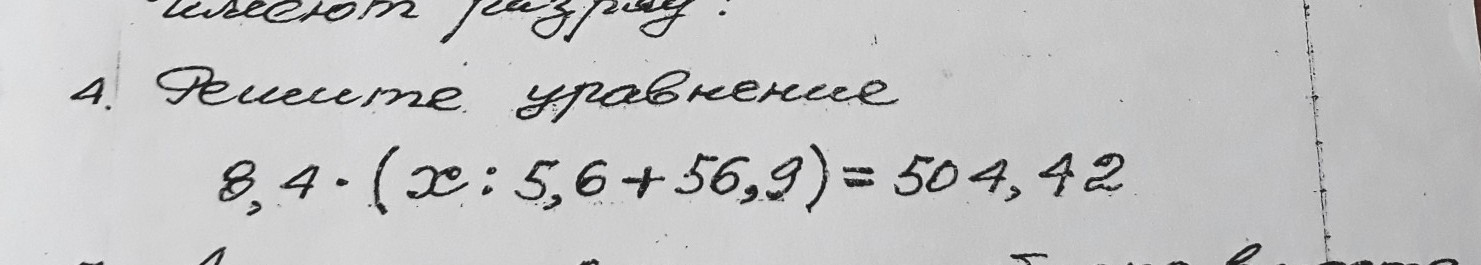 имеют
4. Решите уравнение
8,4·(x:5,6+56,9)=504,42